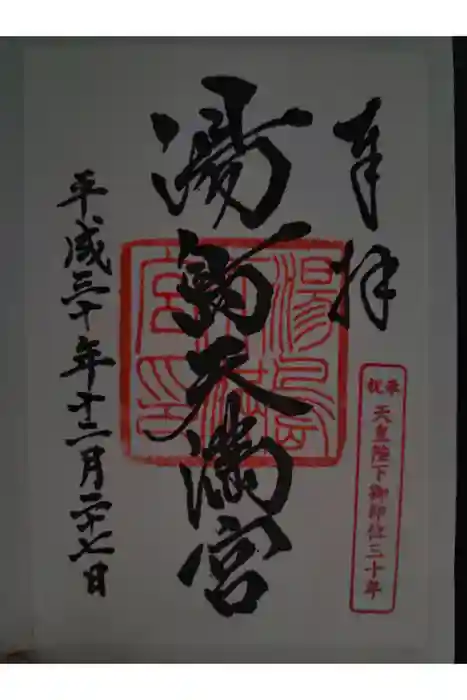 奉拝
奉祝 天皇陛下御即位三十年
湯島天満宮
湯島天満宮印
平成三十年十二月二十七日